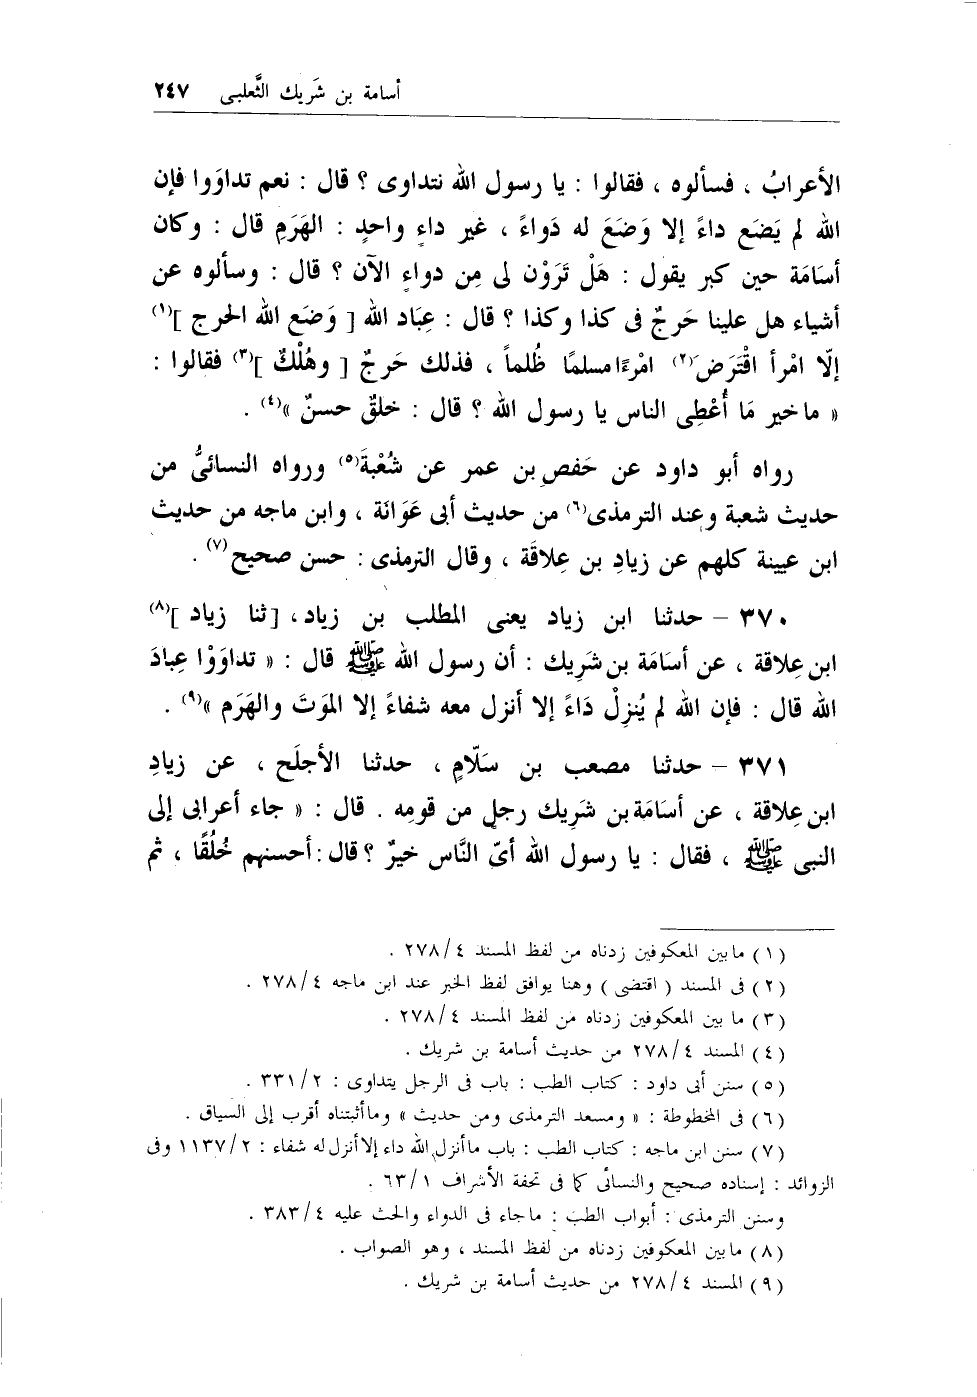 أسامة بن شَريك الثَّعلبى ٢٤٧
الأعرابُ ، فسألوه ، فقالوا : يا رسول الله نتداوى ؟ قال : نعم تداوَوا فإن
الله لم يَضَع داءً إلا وَضَعَ له دَواءً ، غير داءٍ واحدٍ : الهَرَمِ قال : وكان
أسَامَة حين كبر يقول : هَلْ تَرَوْن لى مِن دواءٍ الآن ؟ قال : وسألوه عن
أشياء هل علينا حَرجٌ فى كذا وكذا ؟ قال : عِبَاد الله [ وَضَع الله الحرج ](١)
إلّا امْرأ اقْتَرَضَ(٢) امْرءًا مسلمًا ظُلماً ، فذلك حَرجٌ [ وهُلْكٌ ](٣) فقالوا :
« ما خير مَا أُعْطِى الناس يا رسول الله ؟ قال : خلقٌ حسنٌ »(٤) .
رواه أبو داود عن حَفصِ بن عمر عن شُعْبةَ(٥) ورواه النسائىُّ من
حديث شعبة وعند الترمذى(٦) من حديث أبى عَوَانَة ، وابن ماجه من حديث
ابن عيينة كلهم عن زيادِ بن عِلاقَة ، وقال الترمذى : حسن صحيح(٧) .
٣٧٠ – حدثنا ابن زياد يعنى المطلب بن زياد ، [ ثنا زياد ](٨)
ابن عِلاقة ، عن أسَامَة بن شَرِيك : أن رسول الله ﷺ قال : « تداوَوْا عِبادَ
الله قال : فإن الله لم يُنزِلْ دَاءً إلا أنزل معه شفاءً إلا المَوتَ والهَرَم »(٩) .
٣٧١ – حدثنا مصعب بن سَلّامٍ ، حدثنا الأجلَح ، عن زيادِ
ابن عِلاقة ، عن أسَامَة بن شَرِيك رجلٍ من قومِه . قال : « جاء أعرابى إلى
النبى ﷺ ، فقال : يا رسول الله أىّ النَّاس خيرٌ ؟ قال : أحسنهم خُلُقًا ، ثم
(١) ما بين المعكوفين زدناه من لفظ المسند ٢٧٨/٤ .
(٢) فى المسند ( اقتضى ) وهنا يوافق لفظ الخبر عند ابن ماجه ٢٧٨/٤ .
(٣) ما بين المعكوفين زدناه من لفظ المسند ٢٧٨/٤ .
(٤) المسند ٢٧٨/٤ من حديث أسامة بن شريك .
(٥) سنن أبى داود : كتاب الطب : باب فى الرجل يتداوى : ٣٣١/٢ .
(٦) فى المخطوطة : « ومسعد الترمذى ومن حديث » وما أثبتناه أقرب إلى السياق .
(٧) سنن ابن ماجه : كتاب الطب : باب ما أنزل الله داء إلا أنزل له شفاء : ١١٣٧/٢ وفى
الزوائد : إسناده صحيح والنسائى كما فى تحفة الأشراف ٦٣/١ .
وسنن الترمذى : أبواب الطب : ما جاء فى الدواء والحث عليه ٣٨٣/٤ .
(٨) ما بين المعكوفين زدناه من لفظ المسند ، وهو الصواب .
(٩) المسند ٢٧٨/٤ من حديث أسامة بن شريك .